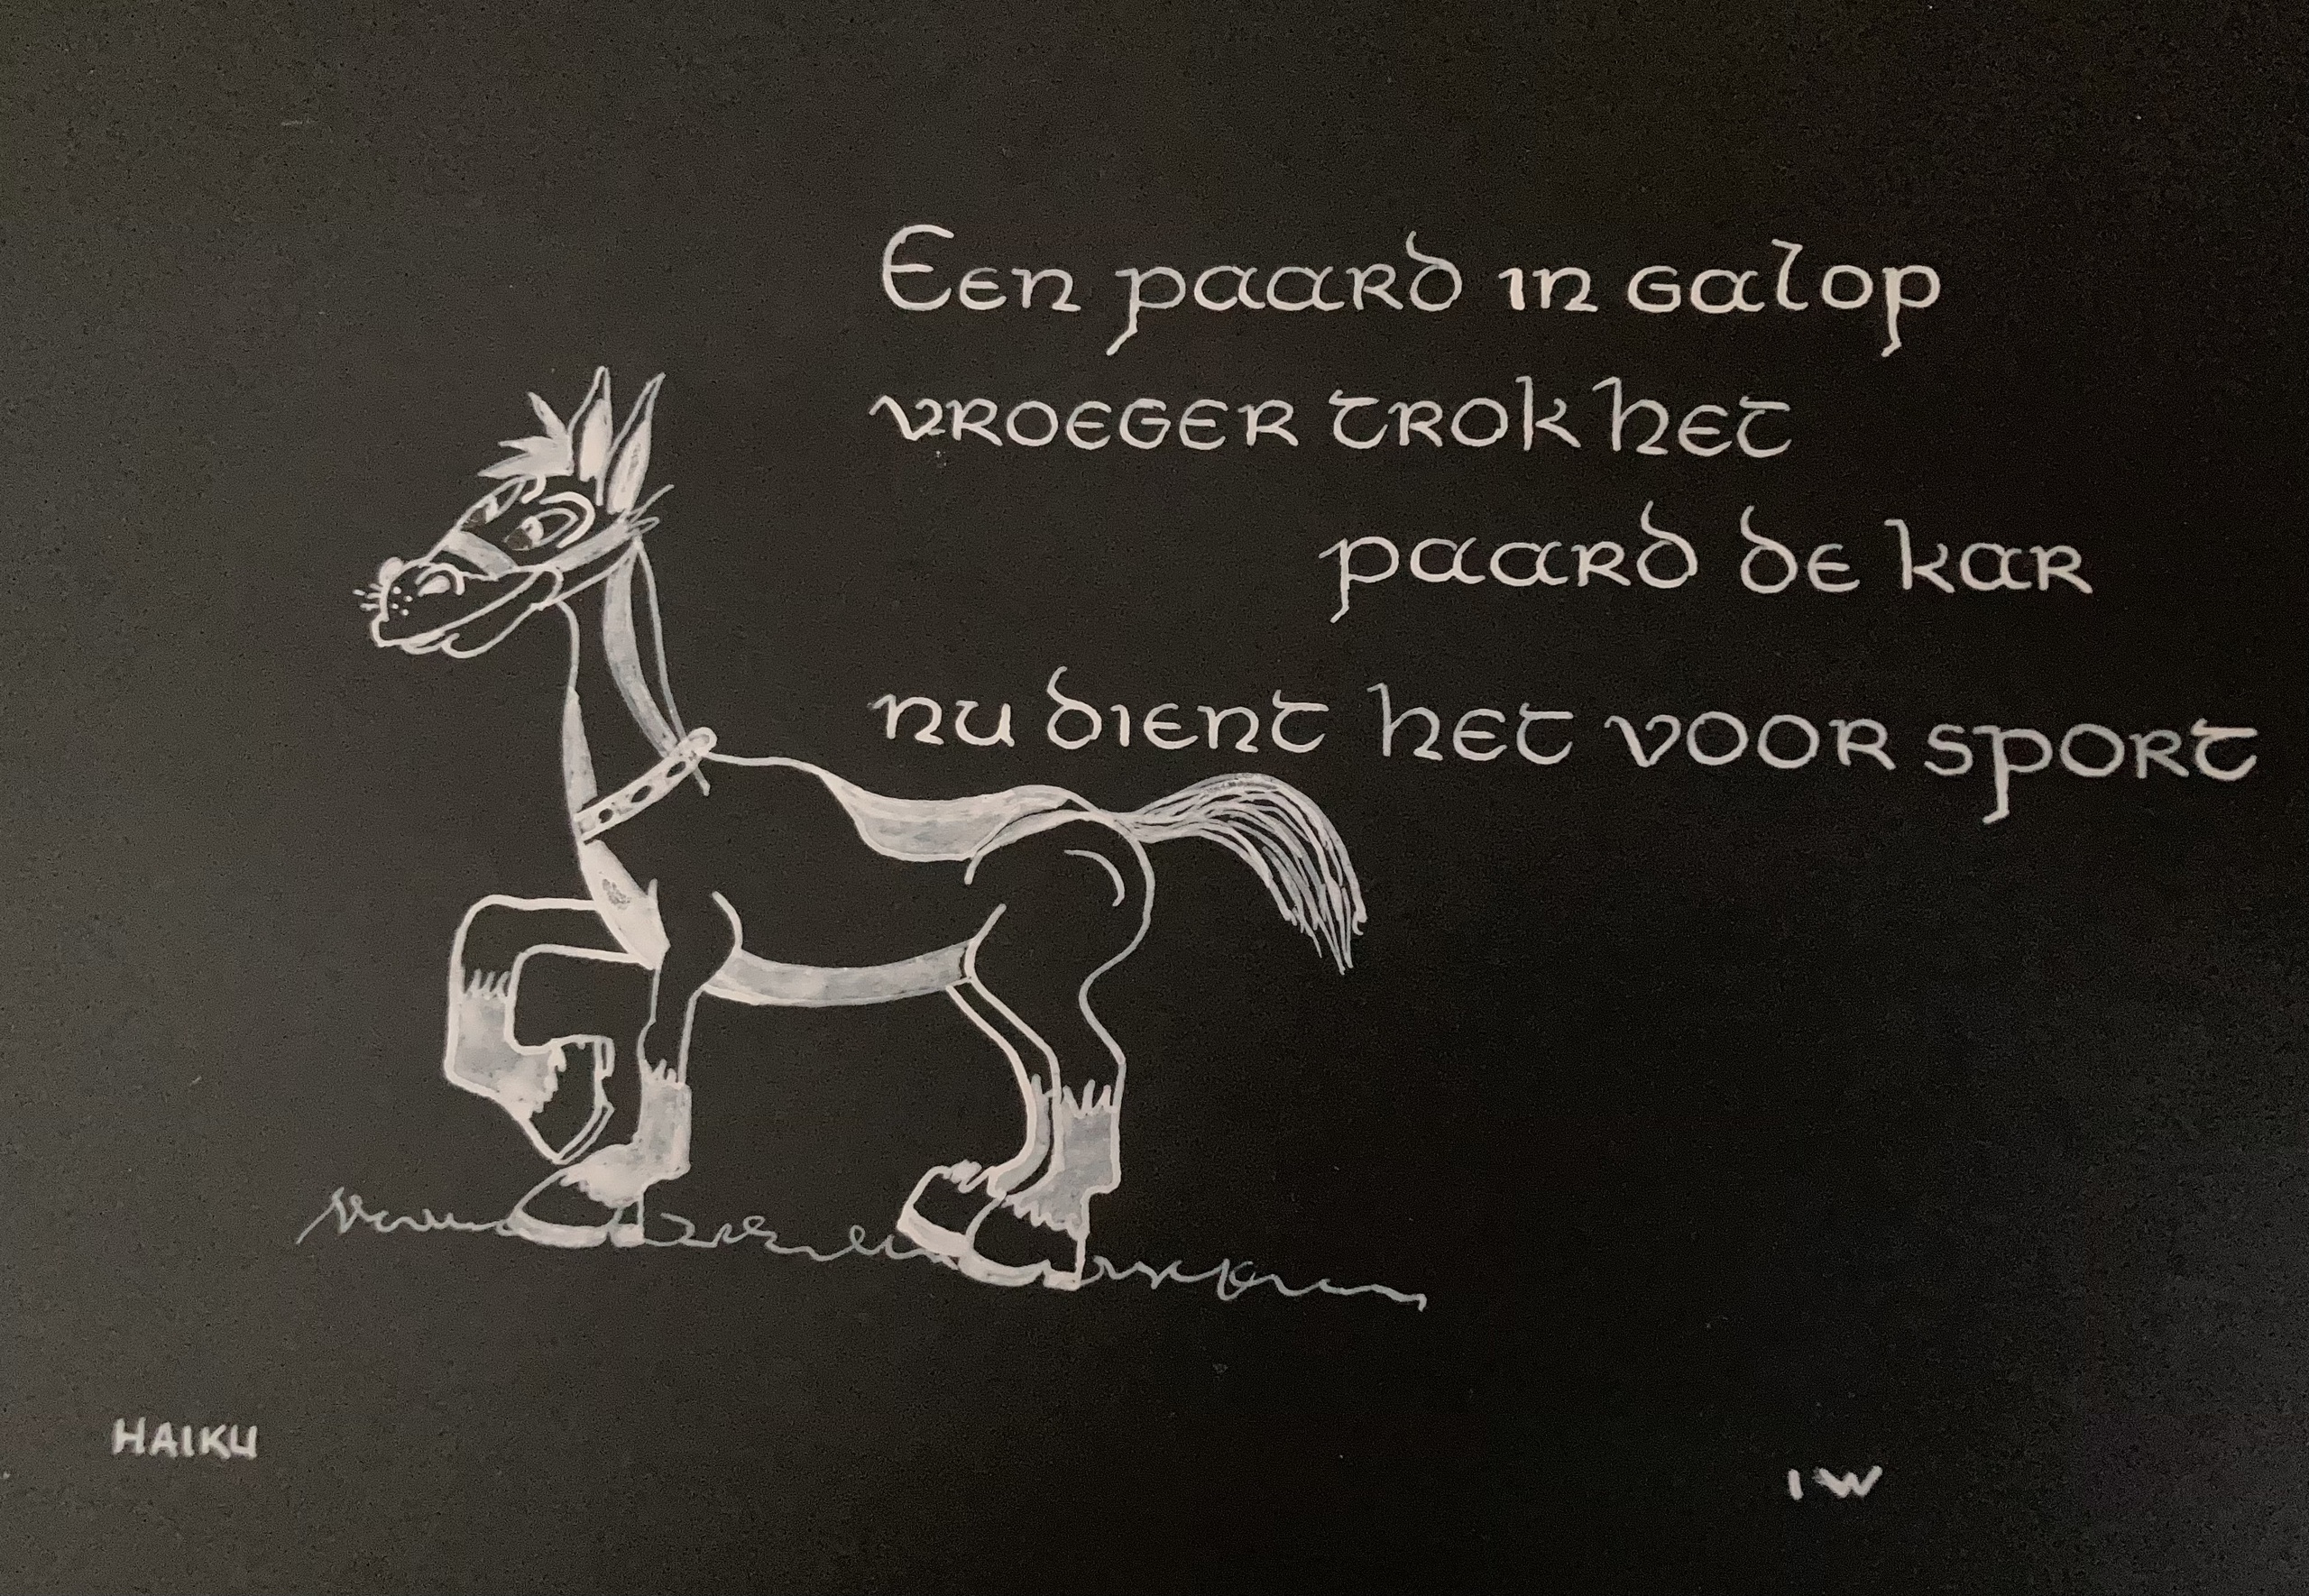 Een paard in galop
vroeger trok het
paard de kar
nu dient het voor sport
HAIKU
IW